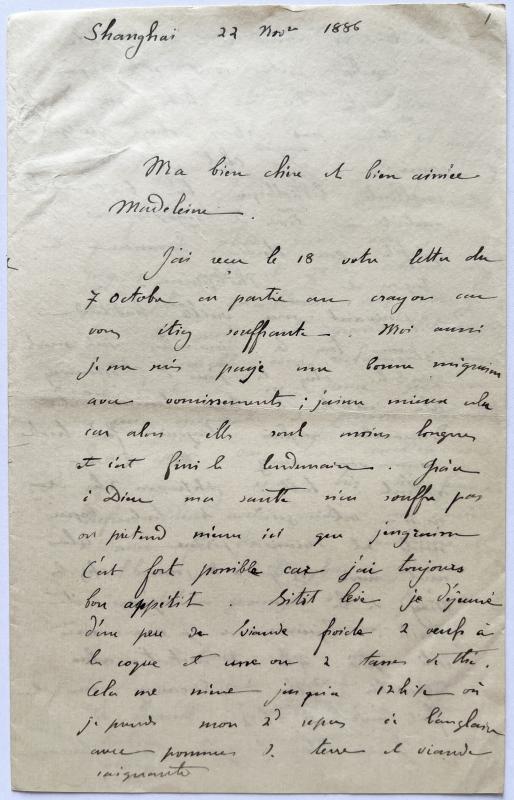 1
Shanghai 22 Novre 1886
Ma bien chère et bien aimée
Madeleine.
J'ai reçu le 18 votre lettre du
7 octobre en partie au crayon car
vous étiez souffrante. Moi aussi
je me suis payé une bonne migraine
avec vomissements ; j'aime mieux cela
car alors elles sont moins longues
et c'est fini le lendemain. Grâce
à Dieu ma santé n'en souffre pas
on prétend même ici que j'engraisse
C'est fort possible car j'ai toujours
bon appétit. Sitôt levé je déjeune
d'un peu de viande froide 2 oeufs à
la coque et une ou 2 tasses de thé.
Cela me mène jusqu'à 12h½ où
je prends mon 2d repas à l'anglaise
avec pommes d. terre et viande
saignante